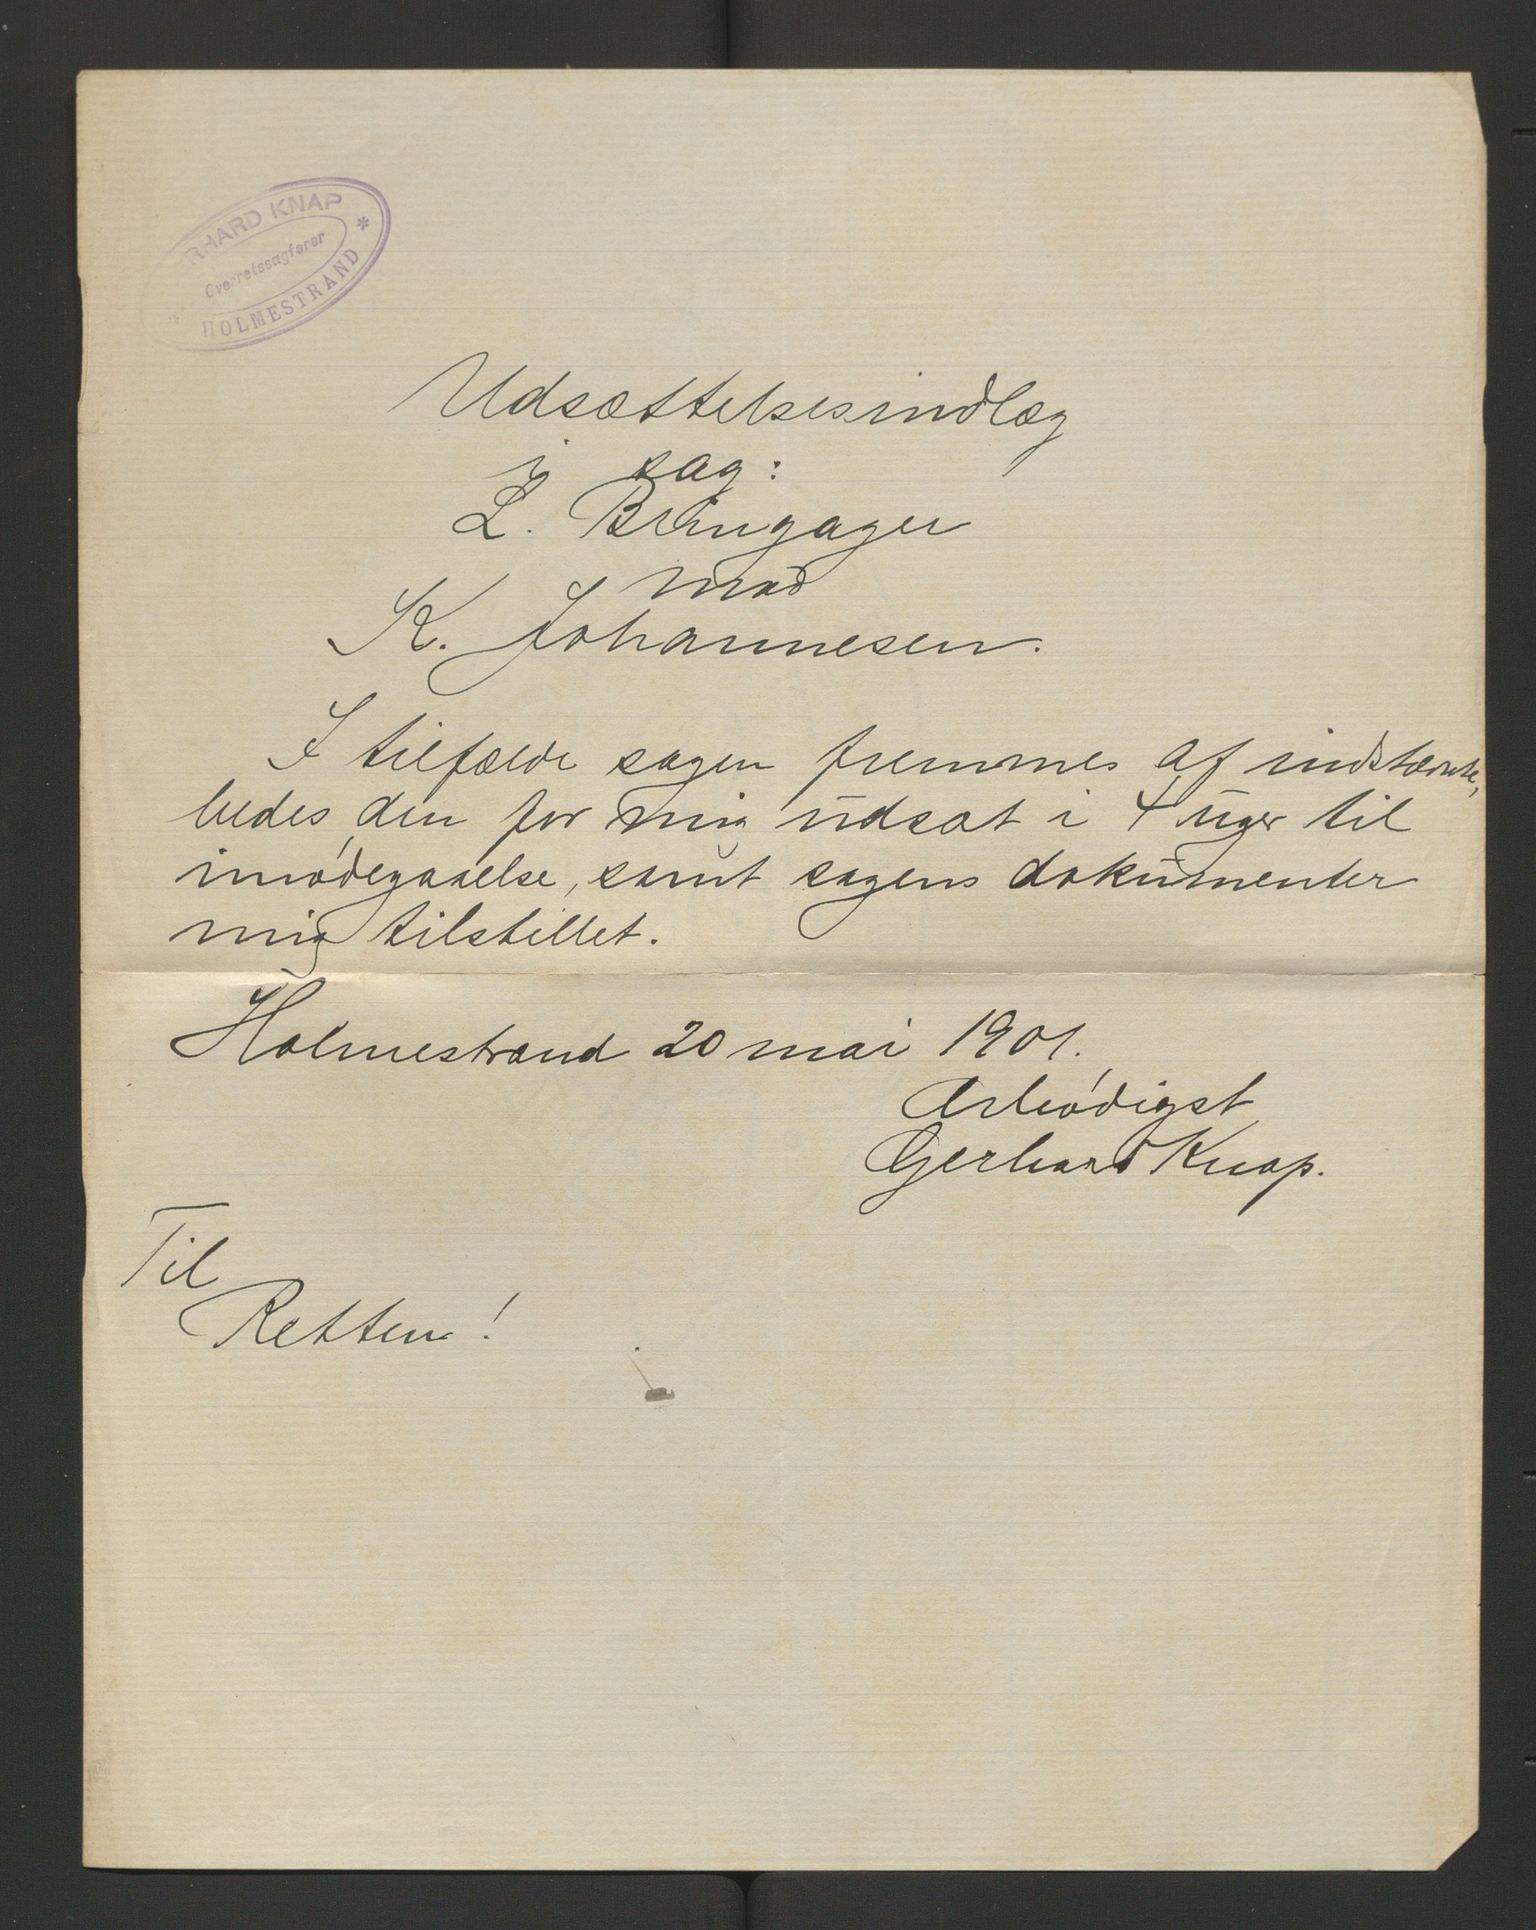 GERHARD KNAP
Overretssagfører
* HOLMESTRAND *
Udsættelsesindlæg
i sag:
L. Bringager
mod
K. Johannesen.
I tilfælde sagen fremmes af indstævnte,
bedes den for mig udsat i 4 uger til
imødegaaelse, samt sagens dokumenter
mig tilstillet.
Holmestrand 20 mai 1901.
Ærbødigst
Gerhard Knap.
Til
Retten!